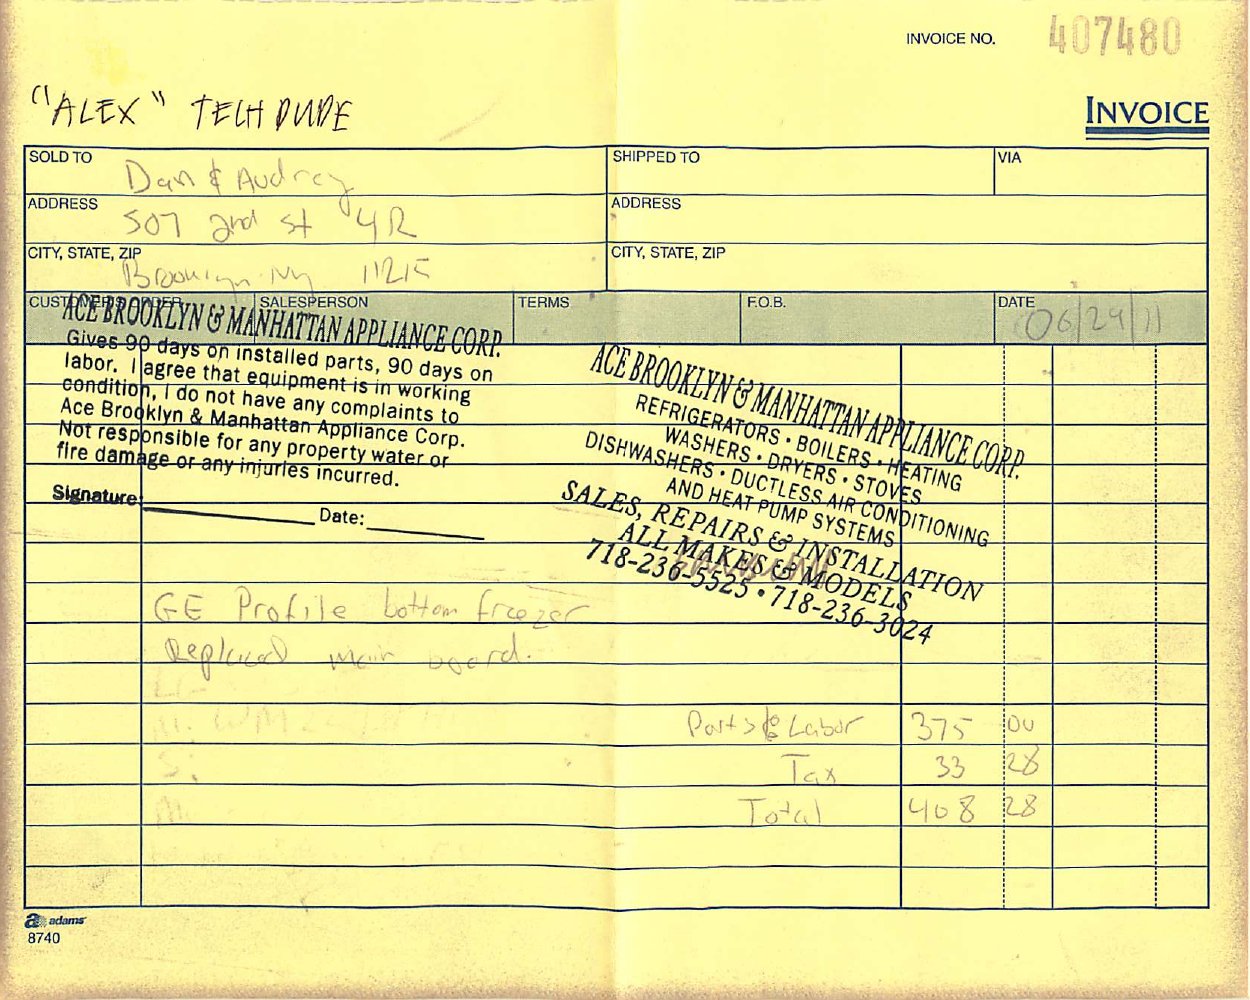 INVOICE NO. 407480
"ALEX" TECH DUDE
INVOICE
SOLD TO Dan & Audrey
SHIPPED TO
VIA
ADDRESS 507 2nd St 4R
ADDRESS
CITY, STATE, ZIP Brooklyn NY 11215
CITY, STATE, ZIP
CUSTOMER'S ORDER
SALESPERSON
TERMS
F.O.B.
DATE 06/29/11
ACE BROOKLYN & MANHATTAN APPLIANCE CORP.
Gives 90 days on installed parts, 90 days on
labor. I agree that equipment is in working
condition, I do not have any complaints to
Ace Brooklyn & Manhattan Appliance Corp.
Not responsible for any property water or
fire damage or any injuries incurred.
Signature: Date:
ACE BROOKLYN & MANHATTAN APPLIANCE CORP.
REFRIGERATORS • BOILERS • HEATING
WASHERS • DRYERS • STOVES
DISHWASHERS • DUCTLESS AIR CONDITIONING
AND HEAT PUMP SYSTEMS
SALES, REPAIRS & INSTALLATION
ALL MAKES & MODELS
718-236-5525 • 718-236-3024
GE Profile bottom freezer
Replaced main board.
Parts & Labor 375 00
Tax 33 28
Total 408 28
adams
8740